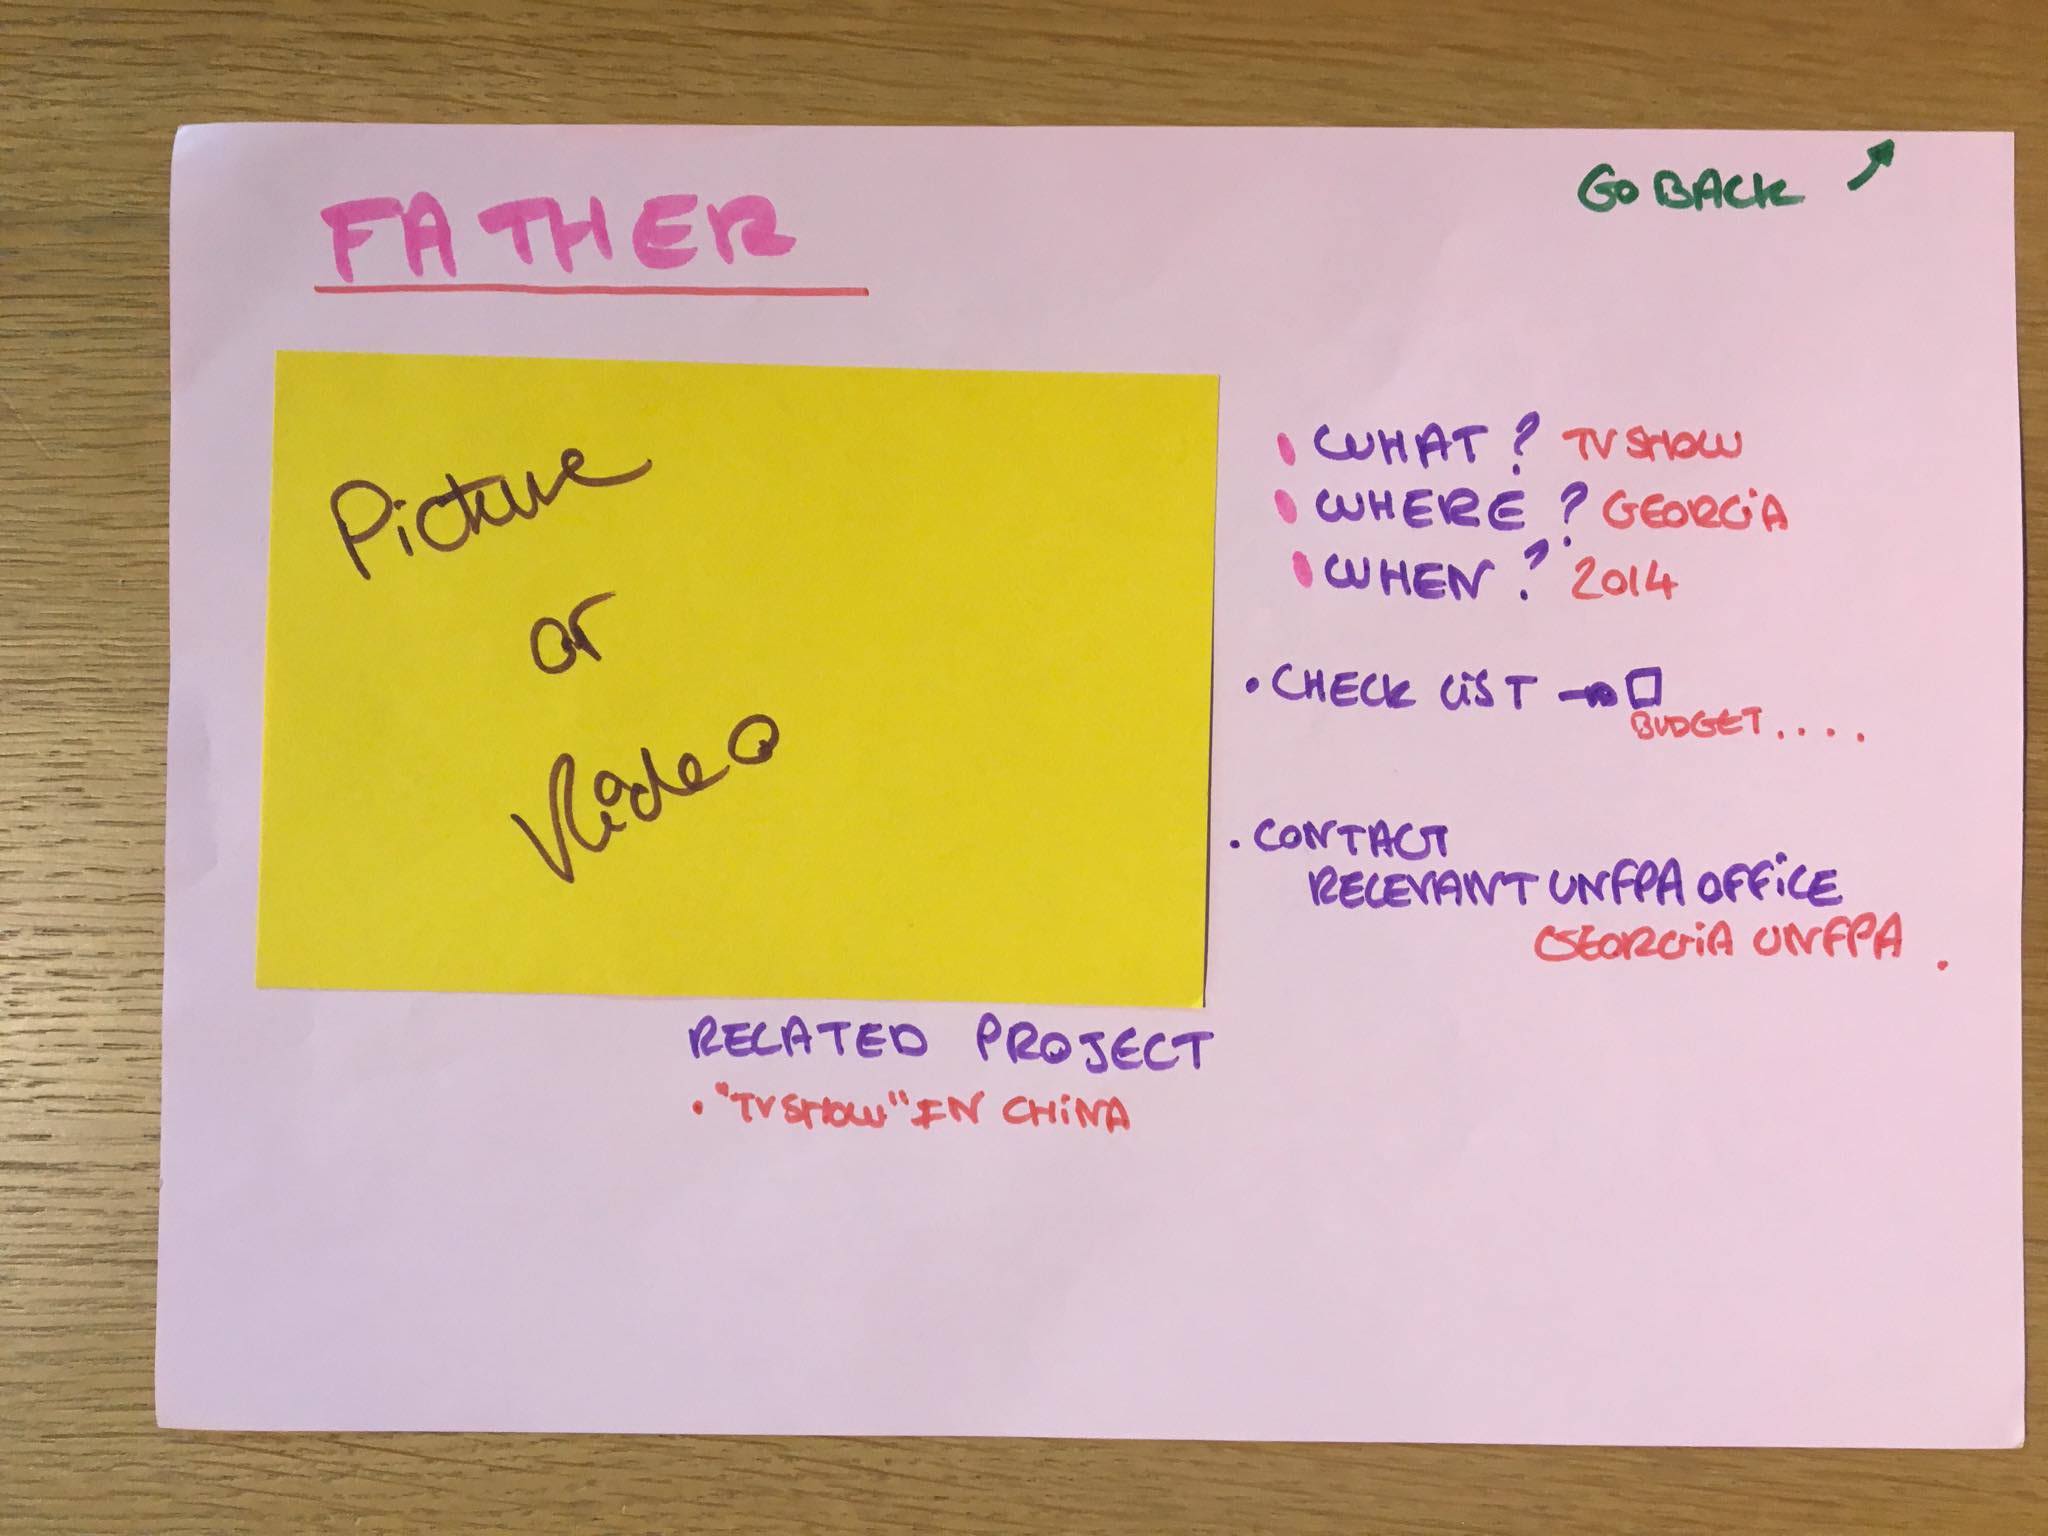 FATHER
GO BACK
Picture
or
Video
WHAT? TV SHOW
WHERE? GEORGIA
WHEN? 2014
• CHECK LIST →
BUDGET....
• CONTACT
RELEVANT UNFPA OFFICE
GEORGIA UNFPA.
RELATED PROJECT
• "TV SHOW" IN CHINA